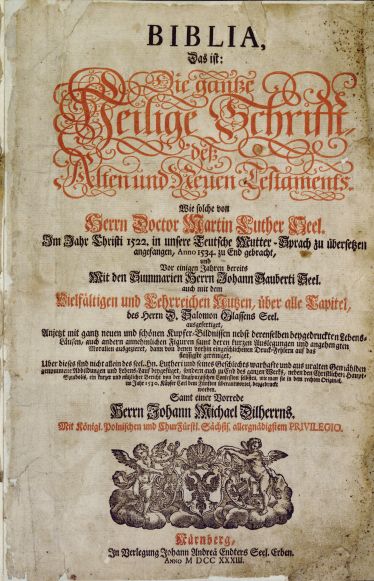 BIBLIA,
Das ist:
Die gantze
Heilige Schrifft,
deß
Alten und Neuen Testaments.
Wie solche von
Herrn Doctor Martin Luther Seel.
Im Jahr Christi 1522, in unsere Teutsche Mutter-Sprach zu übersetzen
angefangen, Anno 1534. zu End gebracht,
und
Vor einigen Jahren bereits
Mit den Summarien Herrn Johann Sauberti Seel.
auch mit dem
Vielfältigen und Lehrreichen Nutzen, über alle Capitel,
des Herrn D. Salomon Glassens Seel.
ausgefertiget,
Anjetzt mit gantz neuen und schönen Kupfer-Bildnissen nebst derenselben beygedruckten Lebens-
Läufen, auch andern annehmlichen Figuren samt deren kurtzen Auslegungen und angehengten
Moralien ausgezieret, dann von denen vorhin eingeschlichenen Druck-Fehlern auf das
fleissigste gereiniget,
Uber dieses sind nicht allein des seel. Hn. Lutheri und seines Geschlechts warhafte und aus uralten Gemählden
genommene Abbildungen und Lebens-Lauf beygefüget, sondern auch zu End des gantzen Werks, neben den Christlichen Haupt-
Symbolis, ein kurzer und nützlicher Bericht von der Augspurgischen Confession solcher, wie man sie in dem rechten Original,
im Jahr 1530. Käyser Carl dem Fünften überantwortet, beygedruckt
worden.
Samt einer Vorrede
Herrn Johann Michael Dilherrns.
Mit Königl. Polnischen und ChurFürstl. Sächsis. allergnädigstem PRIVILEGIO.
Nürnberg,
In Verlegung Johann Andreä Endters Seel. Erben.
ANNO M DCC XXXIII.